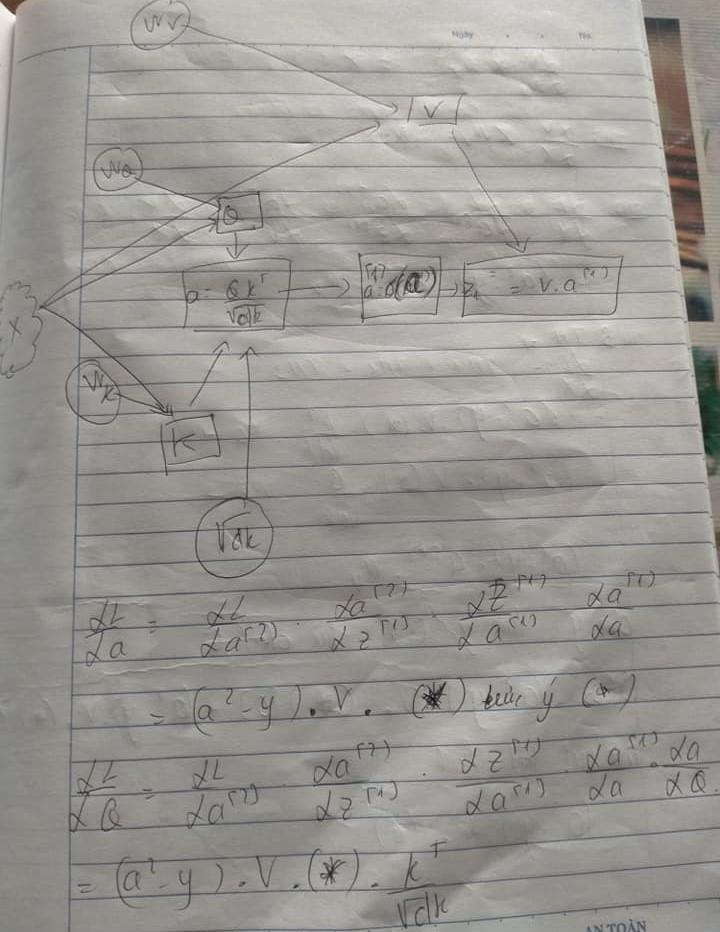 Wv
Ngày . . No.
V
WQ
Q
a = Q K^T / √dk
a^[1] = σ(a)
z1 = V.a^[1]
X
WK
K
√dk
dL/da = dL/da^[2] . da^[2]/dz^[1] . dz^[1]/da^[1] da^[1]/da
= (a^2 - y) . V . (*) ý (*)
dL/dQ = dL/da^[2] da^[2]/dz^[1] . dz^[1]/da^[1] . da^[1]/da . da/dQ.
= (a^2 - y) . V . (*) . K^T/√dk
AN TOÀN